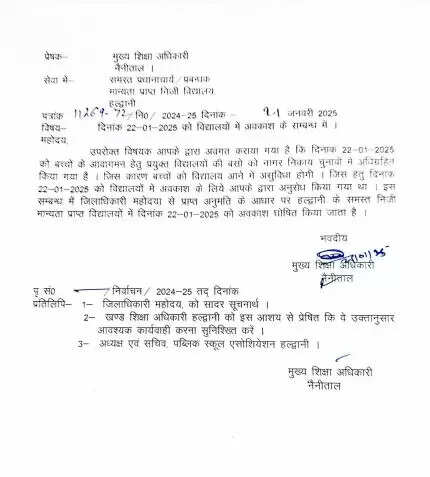 प्रेषक–	मुख्य शिक्षा अधिकारी
नैनीताल ।
सेवा में–	समस्त प्रधानाचार्य/प्रबन्धक
मान्यता प्राप्त निजी विद्यालय
हल्द्वानी
पत्रांक 11269-72/नि0/ 2024-25 दिनांक - 21 जनवरी 2025
विषय–	दिनांक 22-01-2025 को विद्यालयों में अवकाश के सम्बन्ध में ।
महोदय,
उपरोक्त विषयक आपके द्वारा अवगत कराया गया है कि दिनांक 22-01-2025
को बच्चों के आवागमन हेतु प्रयुक्त विद्यालयों की बसों को नागर निकाय चुनावों में अधिग्रहित
किया गया है । जिस कारण बच्चों को विद्यालय आने में असुविधा होगी । जिस हेतु दिनांक
22-01-2025 को विद्यालयों में अवकाश के लिये आपके द्वारा अनुरोध किया गया था । इस
सम्बन्ध में जिलाधिकारी महोदया से प्राप्त अनुमति के आधार पर हल्द्वानी के समस्त निजी
मान्यता प्राप्त विद्यालयों में दिनांक 22-01-2025 को अवकाश घोषित किया जाता है ।
भवदीय
मुख्य शिक्षा अधिकारी
नैनीताल
पृ सं0 /निर्वाचन/ 2024-25 तद् दिनांक
प्रतिलिपि– 1– जिलाधिकारी महोदय, को सादर सूचनार्थ ।
2– खण्ड शिक्षा अधिकारी हल्द्वानी को इस आशय से प्रेषित कि वे उक्तानुसार
आवश्यक कार्यवाही करना सुनिश्चित करें ।
3– अध्यक्ष एवं सचिव, पब्लिक स्कूल एसोशियेशन हल्द्वानी ।
मुख्य शिक्षा अधिकारी
नैनीताल